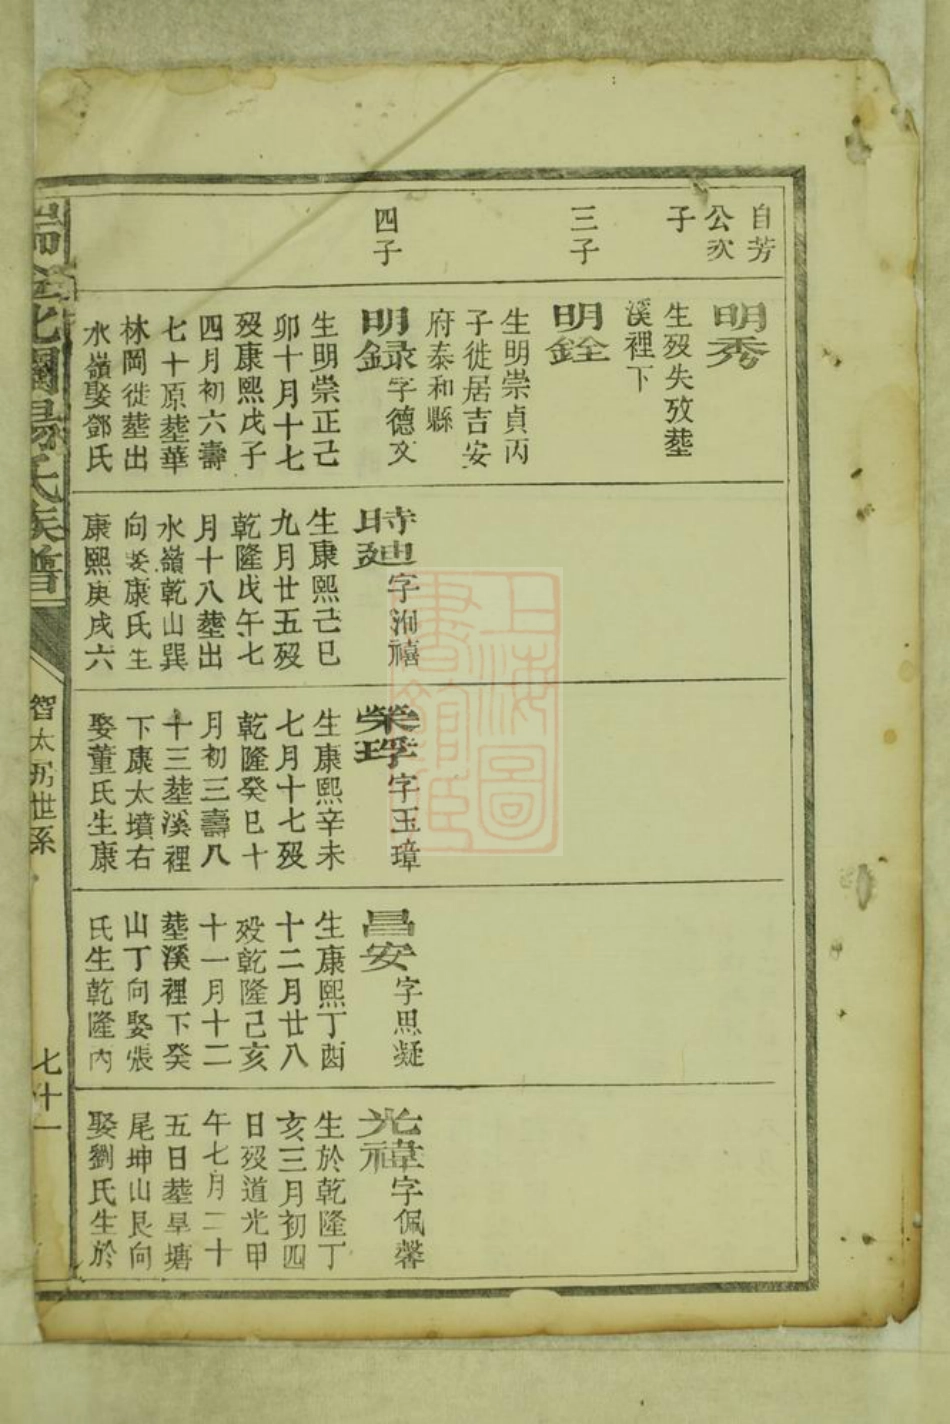 自芳
公次
子
三子
四子
明秀
生歿失攷塟
溪裡下
明銓
生明崇貞丙
子徙居吉安
府泰和縣
明録字德文
生明崇正己
卯十月十七
歿康熙戊子
四月初六壽
七十原塟華
林岡徙塟出
水嶺娶鄧氏
時廸字洊禧
生康熙己巳
九月廿五歿
乾隆戊午七
月十八塟出
水嶺乾山巽
向娶康氏生
康熙庚戌六
榮琈字玉璋
生康熙辛未
七月十七歿
乾隆癸巳十
月初三壽八
十三塟溪裡
下康太墳右
娶董氏生康
昌安字思凝
生康熙丁酉
十二月廿八
歿乾隆己亥
十一月十二
塟溪裡下癸
山丁向娶張
氏生乾隆丙
光禕字佩馨
生於乾隆丁
亥三月初四
日歿道光甲
午七月二十
五日塟旱塘
尾坤山艮向
娶劉氏生於
楊氏族譜
智太房世系
七十一
上海圖
書館藏